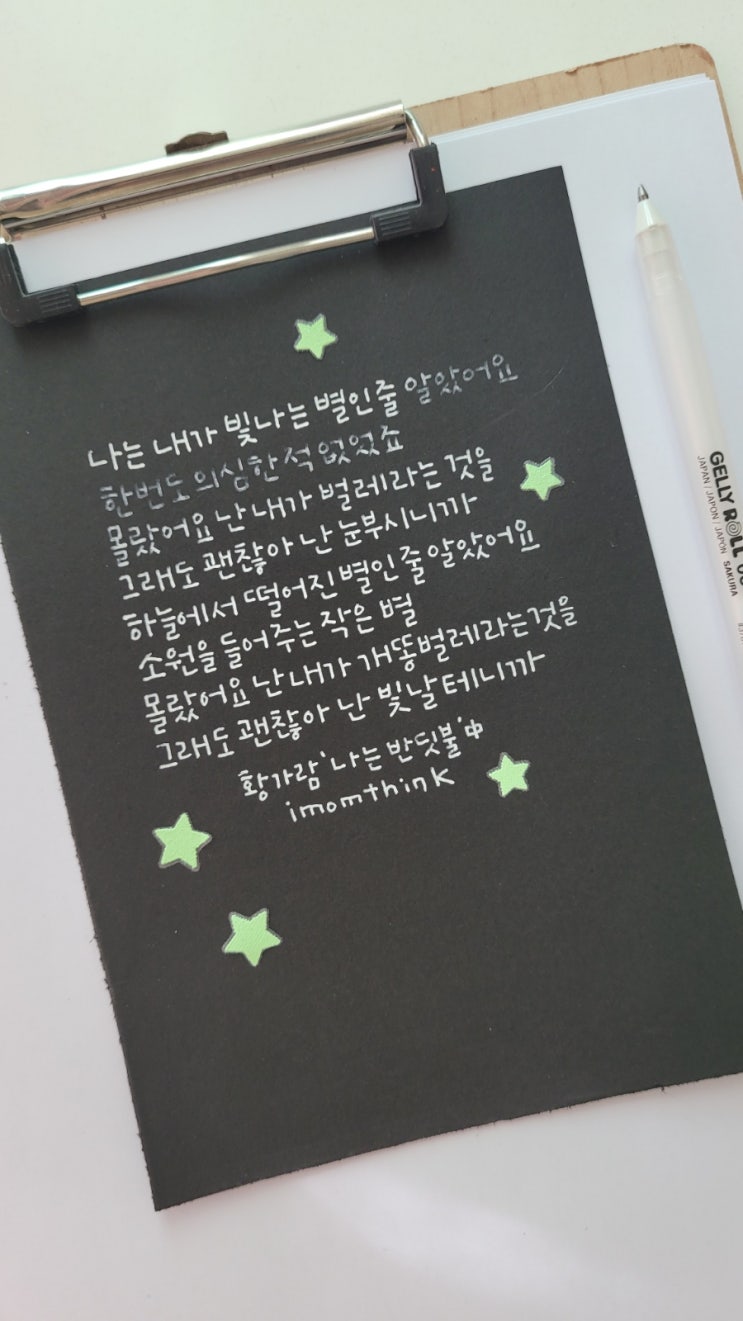 나는 내가 빛나는 별인줄 알았어요
한번도 의심한 적 없었죠
몰랐어요 난 내가 벌레라는 것을
그래도 괜찮아 난 눈부시니까
하늘에서 떨어진 별인 줄 알았어요
소원을 들어주는 작은 별
몰랐어요 난 내가 개똥벌레라는것을
그래도 괜찮아 난 빛날테니까
황가람 '나는 반딧불' 中
imomthink
GELLY ROLL
JAPAN / JAPON / JAPÓN SAKURA